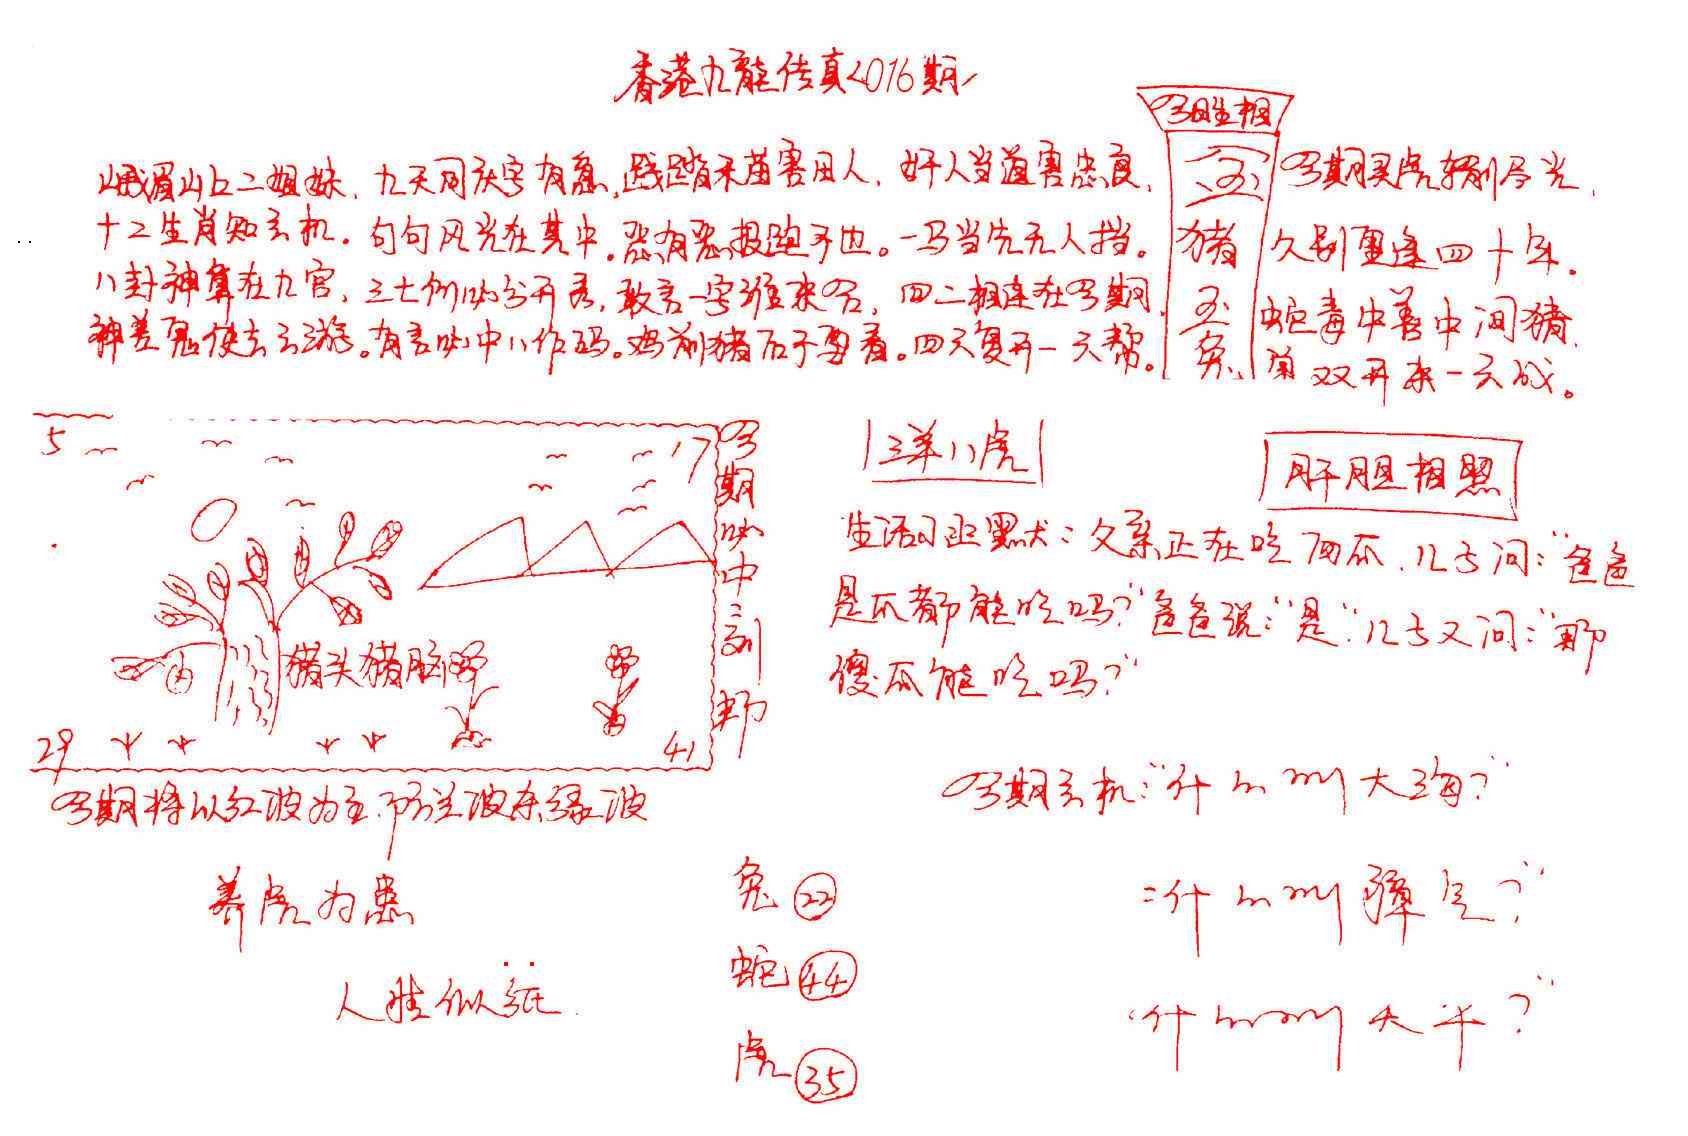 香港九龍传真2016期
今期生相
峨眉山上二姐妹，九天同庆字有意，践踏禾苗害田人，奸人当道害忠良，
十二生肖知玄机。句句风光在其中。恶有恶报跑不也。一马当先无人挡。
八卦神算在九宫，三七例必分开表，敢言一字谁来答，四二相连在今期，
神差鬼使去云游。有言必中八作码。鸡前猪后子要看。四六复开一六帮。
玉
猪
玉
兔
今期买虎转别尽光，
久别重逢四十年。
蛇毒中善中间猪，
双开来一六成。
5
17
29
41
猪头猪脑
今期必中三别那
今期将以红波为主，防兰波杀绿波
养虎为患
人生似纸
三羊八虎
肝胆相照
生活日班墨犬：父亲正在吃西瓜，儿子问：“爸爸
是瓜都能吃吗？”爸爸说：“是”儿子又问：“那
傻瓜能吃吗？”
今期玄机：“什么叫大海？”
：什么叫障气？”
“什么叫太平？”
兔 22
蛇 44
虎 35